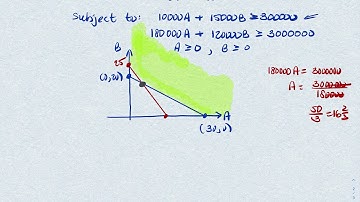 subject to: 10000A + 15000B ≥ 300000
180000A + 120000B ≥ 3000000
A ≥ 0, B ≥ 0
B
25
(0,20)
A
(30,0)
180000A = 3000000
A = 3000000/180000
50/3 = 16 2/3